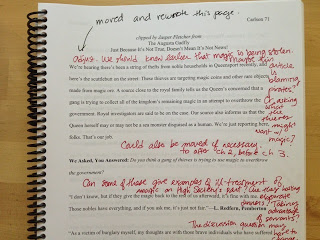 moved and rewrote this page.
Cadeau 71
clipped by Jasper Fletcher from
The Augusta Gadfly
Just Because It's Not True, Doesn't Mean It's Not News!
Adjust. We should know earlier that magic is being stolen.
We're hearing there's been a string of thefts from noble households in Queensport recently, and
Maybe this article is blaming "pirates" or asking what the thieves might want w/ magic?
here's the scuttlebutt on the street: These thieves are targeting magic coins and other rare objects
made from magic ore. A source close to the royal family tells us the Queen's concerned that a
gang is trying to collect all of the kingdom's remaining magic in an attempt to overthrow the
government. Royal investigators are said to be on the case. Our source also informs us that the
Queen herself may or may not be a sea monster disguised as a human. We're just reporting here,
folks. That's our job.
Could also be moved if necessary to after ch 2, before ch 3.
We Asked, You Answered: Do you think a gang of thieves is trying to use magic to overthrow
the government?
Can some of these give examples of ill-treatment of
magic on High Society's part? Like may having
"I don't know, but if they give magic back to the rest of us afterward, it's fine with me.
Those nobles have everything, and if you ask me, it's just not fair."—L. Redfern, Pemberton
Taking advantage of servants?
The discussion question may have to change
"As a victim of burglary myself, my thoughts are with those brave individuals who have suffered